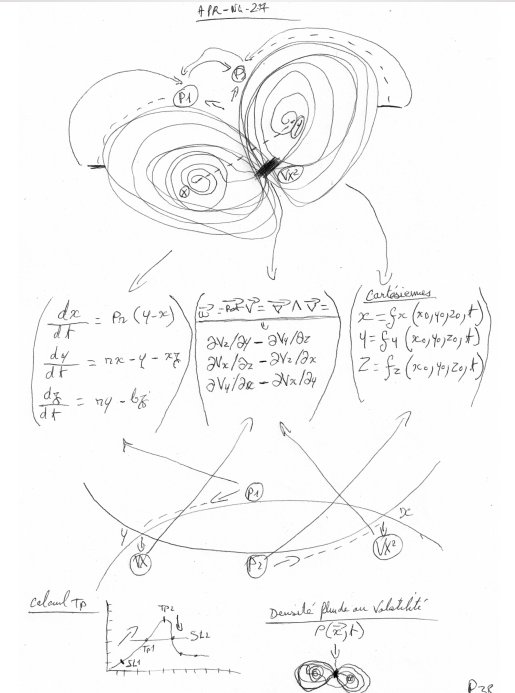 APR-NG-27
P1
P2
VX²
dx/dt = Pr (y-x)
dy/dt = rx - y - xz
dz/dt = xy - bz
ω⃗ = Rot V⃗ = ∇⃗ ∧ V⃗ =
∂Vz/∂y - ∂Vy/∂z
∂Vx/∂z - ∂Vz/∂x
∂Vy/∂x - ∂Vx/∂y
Cartésiennes
x = fx (x0, y0, z0, t)
y = fy (x0, y0, z0, t)
Z = fz (x0, y0, z0, t)
P1
y
x
VX
P2
VX²
Calcul TP
TP2
SL2
TP1
SL1
Densité fluide ou Volatilité
ρ(x⃗, t)